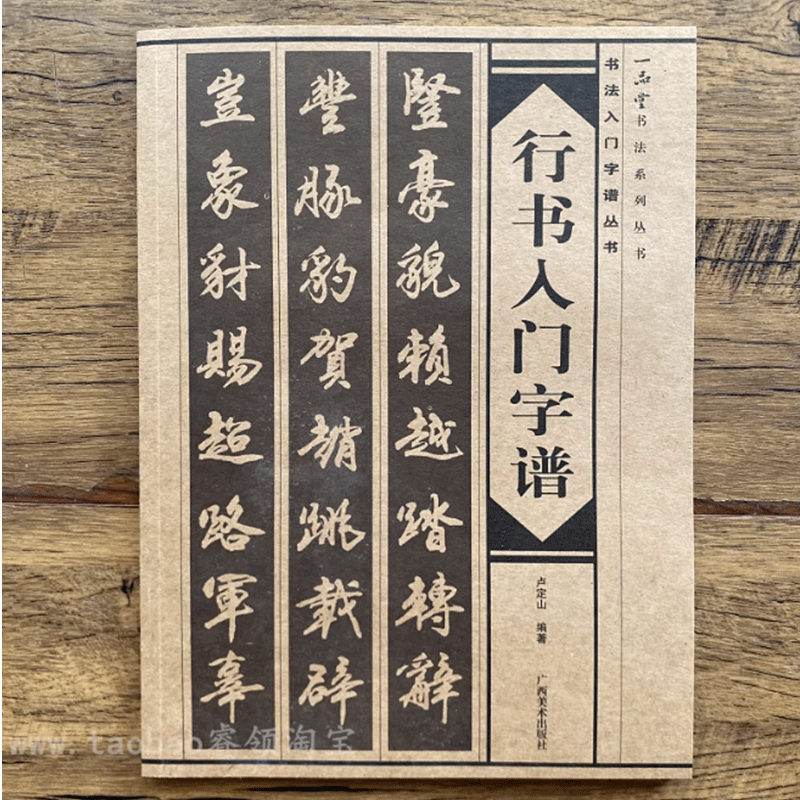 一品堂书法系列丛书
书法入门字谱丛书
行书入门字谱
卢定山 编著
广西美术出版社
豎豪貌賴越踏轉辭
豐豚豹賀趙跳載辟
豈象豺賜超路軍辜
www.taobao睿领淘宝